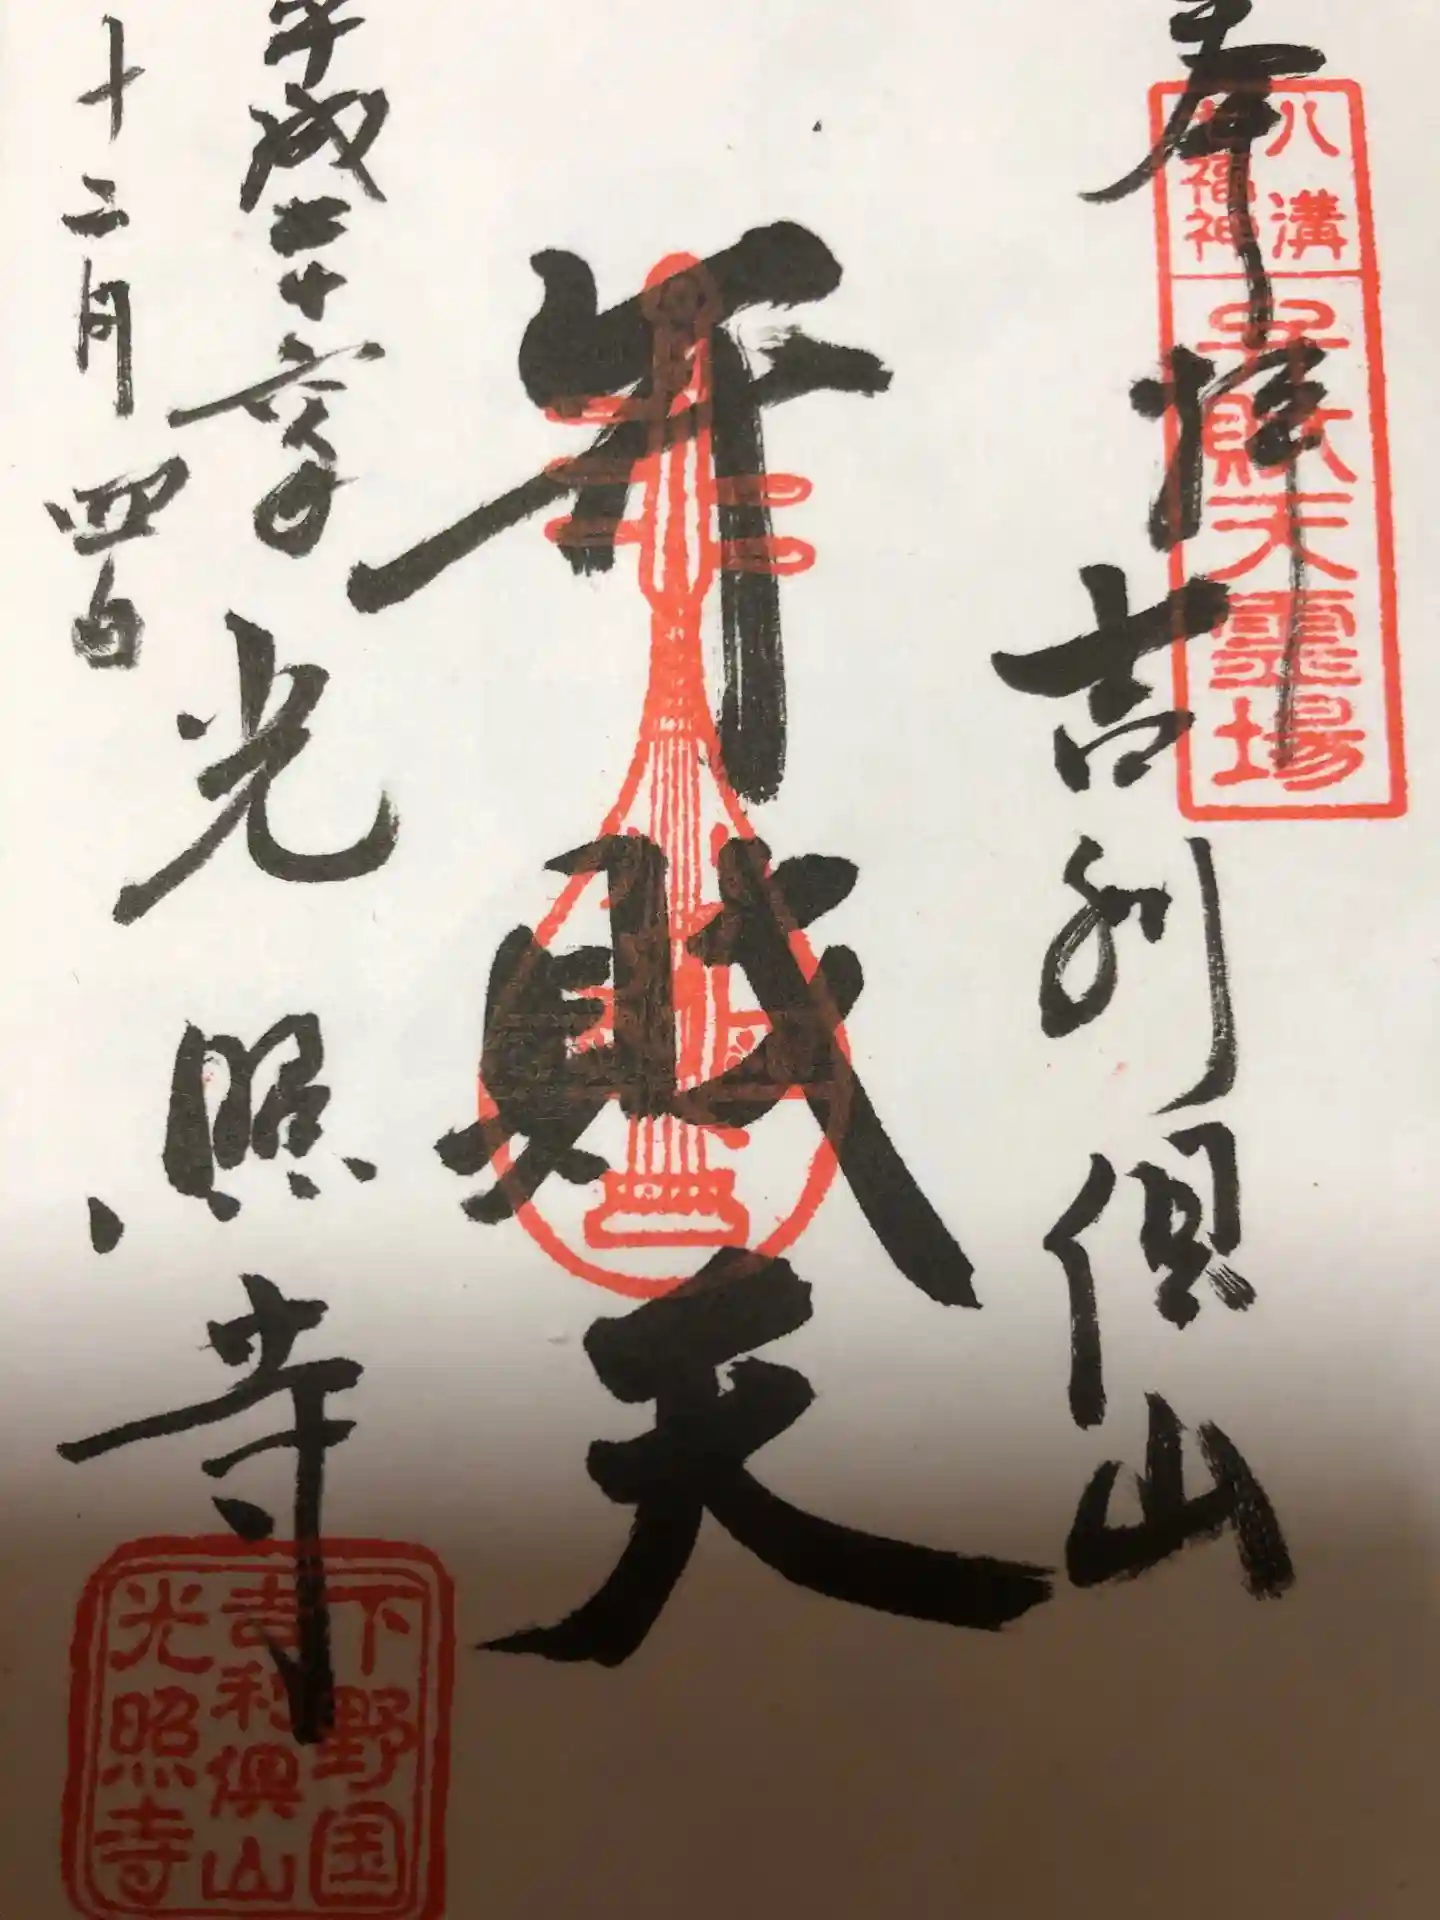 奉拝
吉利倶山
八溝
七福神
弁財天霊場
弁財天
平成二十六年
十二月四日
光照寺
下野国
吉利倶山
光照寺